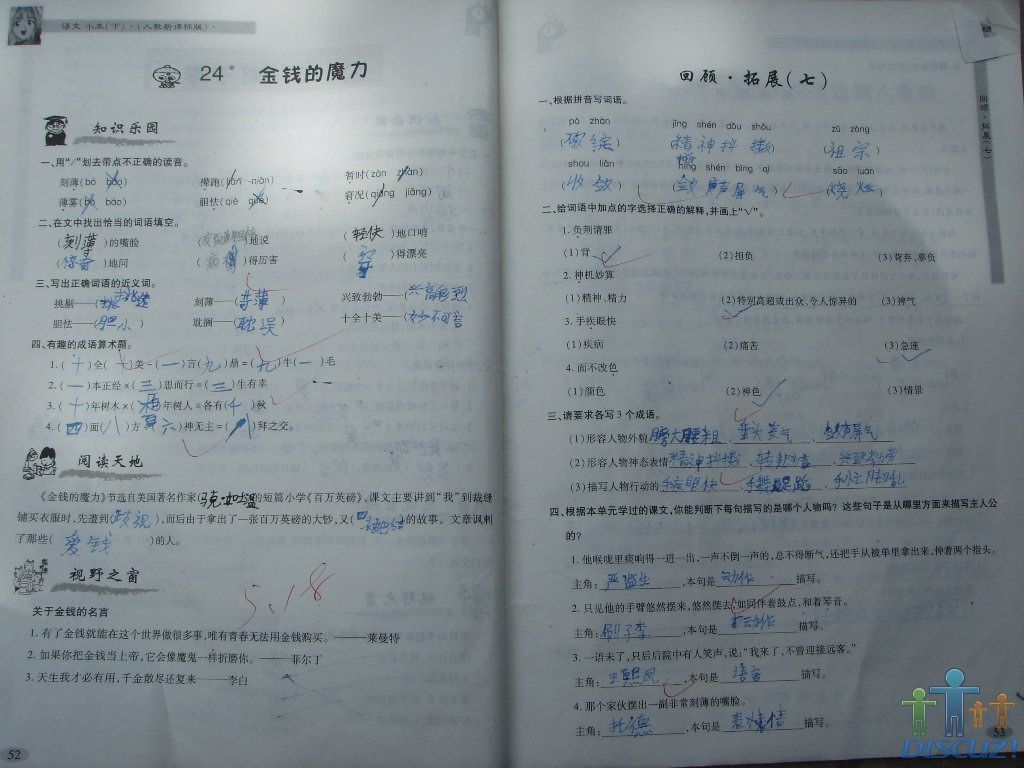 语文 小五(下)·(人教新课标版)·
24* 金钱的魔力
知识乐园
一、用“/”划去带点不正确的读音。
刻薄(bó báo) 撵跑(liǎn niǎn) 暂时(zàn zhàn)
薄雾(bó báo) 胆怯(qiè què) 窘况(qiǎng jiǎng)
二、在文中找出恰当的词语填空。
(刻薄)的嘴脸 ( )地说 (轻快)地口哨
(惊奇)地问 ( )得厉害 ( )得漂亮
三、写出正确词语的近义词。
挑剔——( ) 刻薄——( ) 兴致勃勃——(兴高彩烈)
胆怯——(胆小) 耽搁——(耽误) 十全十美——(妙不可言)
四、有趣的成语算术题。
1. (十)全(十)美-(一)言(九)鼎=(九)牛(一)毛
2. (一)本正经×(三)思而行=(三)生有幸
3. (十)年树木×(百)年树人=各有(千)秋
4. (四)面(八)方 六)神无主=(八)拜之交。
阅读天地
《金钱的魔力》节选自美国著名作家(马克·吐温)的短篇小学《百万英磅》,课文主要讲到“我”到裁缝
铺买衣服时,先遭到(歧视),而后由于拿出了一张百万英磅的大钞,又( )的故事。文章讽刺
了那些( 爱钱 )的人。
视野之窗
5.18
关于金钱的名言
1. 有了金钱就能在这个世界做很多事,唯有青春无法用金钱购买。———莱曼特
2. 如果你把金钱当上帝,它会像魔鬼一样折磨你。———菲尔丁
3. 天生我才必有用,千金散尽还复来———李白
52
回顾·拓展(七)
回顾·拓展(七)
一、根据拼音写词语。
pò zhàn jīng shén dǒu shǒu zǔ zōng
(破绽) (精神抖擞) (祖宗)
shou liàn níng shēng bǐng qì sāo luàn
(收敛) (敛声屏气) ( )
二、给词语中加点的字选择正确的解释,并画上“√”。
1. 负荆请罪
(1)背 (2)担负 (3)背弃、辜负
2. 神机妙算
(1)精神、精力 (2)特别高超或出众、令人惊异的 (3)神气
3. 手疾眼快
(1)疾病 (2)痛苦 (3)急速
4. 面不改色
(1)颜色 (2)神色 (3)情景
三、请要求各写3个成语。
(1)形容人物外貌 膀大腰粗、垂头丧气、敛声屏气
(2)形容人物神态表情 精神抖擞、转悲为喜、兴致勃勃
(3)描写人物行动的 手疾眼快、手舞足蹈、手忙脚乱
四、根据本单元学过的课文,你能判断下每句描写的是哪个人物吗?这些句子是从哪里方面来描写主人公
的?
1. 他喉咙里痰响得一进一出,一声不倒一声的,总不得断气,还把手从被单里拿出来,伸着两个指头。
主角: 严监生 ,本句是 动作 描写。
2. 只见他的手臂悠然摆来,悠然摆去,如同伴着鼓点,和着琴音。
主角: 刷子李 ,本句是 动作 描写。
3. 一语未了,只后后院中有人笑声,说:“我来了,不曾迎接远客。”
主角: 王熙凤 ,本句是 语言 描写。
4. 那个家伙摆出一副非常刻薄的嘴脸。
主角: 托德 ,本句是 表情 描写。
53
DISCUZ!